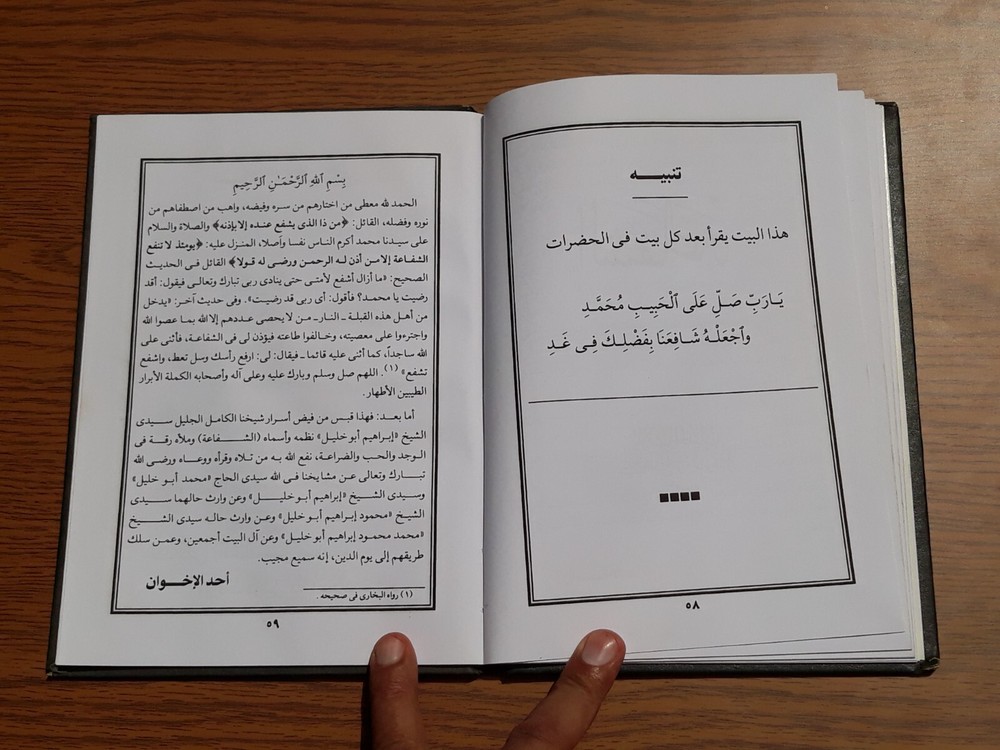 تنبيـــه
هذا البيت يقرأ بعد كل بيت فى الحضرات
يَـارَبِّ صَلِّ عَلَى ٱلْحَبِيبِ مُحَمَّـدِ
وَٱجْعَلْـهُ شَـافِعَنَا بِفَضْلِـكَ فِـى غَـدِ
٥٨
بِسْمِ ٱللَّهِ ٱلرَّحْمَـٰنِ ٱلرَّحِيمِ
الحمد لله معطى من اختارهم من سره وفيضه، واهب من اصطفاهم من
نوره وفضله، القائل: ﴿من ذا الذى يشفع عنده إلا بإذنه﴾ والصلاة والسلام
على سيدنا محمد أكرم الناس نفسا وأصلا، المنزل عليه: ﴿يومئذ لا تنفع
الشفاعة إلا من أذن لـه الرحمن ورضى له قولا﴾ القائل فـى الحديث
الصحيح: «ما أزال أشفع لأمتـى حتى ينادى ربى تبارك وتعالـى فيقول: أقد
رضيت يا محمـد؟ فأقول: أى ربى قد رضيـت». وفى حديث آخـر: «يدخل
من أهل هذه القبلـة ـ النار ـ مـن لا يحصى عـددهم إلا الله بمـا عصوا الله
واجترءوا على معصيته، وخـالفوا طاعته فيؤذن لـى فى الشفاعـة، فأثنى على
الله ساجداً، كما أثنى عليه قائمـا ـ فيقال: لى: ارفع رأسك وسل تعط، واشفع
تشفع» (١). اللهم صل وسلم وبارك عليه وعلى آله وأصحابه الكملة الأبرار
الطيبين الأطهار.
أما بعـد: فهذا قبس من فيض أسـرار شيخنا الكامل الجليل سـيدى
الشيخ «إبراهيم أبو خليل» نظمه وأسماه (الشـــفاعة) وملأه رقـة فى
الوجد والحب والضراعـة، نفع الله به من تلاه وقرأه ووعـاه ورضى الله
تبـارك وتعالى عـن مشايخنا فـى الله سيدى الحاج «محمد أبـو خليل»
وسـيدى الشـيخ «إبراهيم أبـو خليـــل» وعن وارث حالهما سـيدى
الشيخ «محمود إبراهيم أبو خليل» وعـن وارث حالـه سيدى الشـــيخ
«محمد محمود إبراهيم أبو خليـل» وعن آل البيت أجمعين، وعمـن سلك
طريقهم إلى يوم الدين، إنه سميع مجيب.
أحد الإخـــوان
(١) رواه البخارى فى صحيحه .
٥٩